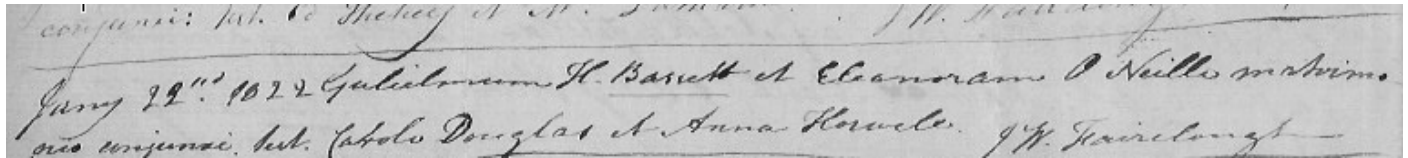 conjunxi: test.
Jany 22nd. 1822 Gulielmum H. Bassett et Eleanoram O Neille matrimo-
nio conjunxi. test. Carolo Douglas et Anna Howele. J W. Fairclough